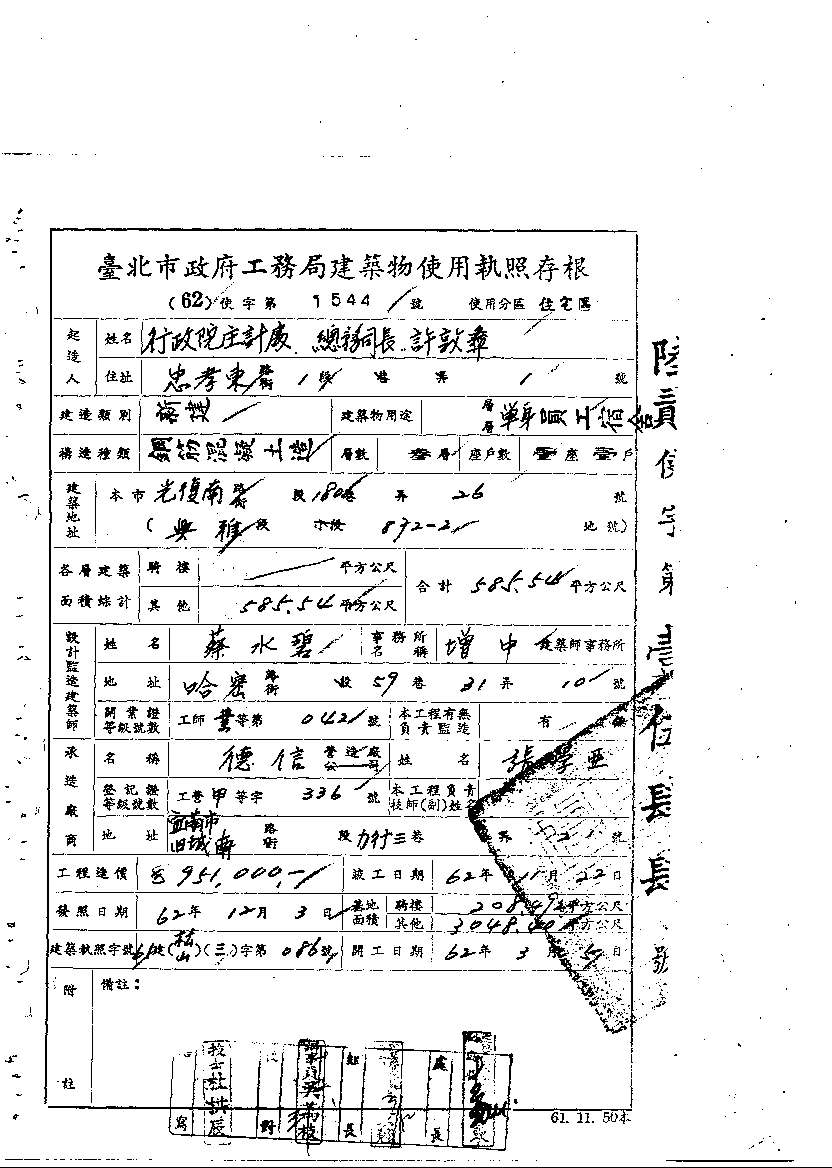 臺北市政府工務局建築物使用執照存根
(62)使字第 1544 號 使用分區 住宅區
起造人 姓名 行政院主計處 總務司長 許敦彝
住址 忠孝東路街 1段 巷 弄 1 號
建造類別 新建 建築物用途 層層 單身員工宿舍
構造種類 鋼筋混凝土造 層數 叁層 座戶數 壹座壹戶
建築地址 本市 光復南路街 段 180巷 弄 26 號
(興雅段 小段 892-2 地號)
各層建築面積綜計 騎樓 平方公尺 合計 585.54 平方公尺
其他 585.54 平方公尺
設計監造建築師 姓名 蔡水碧 事務所名稱 增中 建築師事務所
地址 哈密路街 段 59巷 31弄 10 號
開業證等級號數 工師 等第 0421號 本工程有無負責監造 有 無
承造廠商 名稱 德信 營造廠公司 姓名 張學亞
登記證等級號數 工營甲等字 336 號 本工程負責技師(副)姓名
地址 宜蘭市旧城南路街 段 巷 弄 21 號
工程造價 951,000,- 竣工日期 62年11月22日
發照日期 62年12月3日 基地面積 騎樓 208.49平方公尺
其他 3048.00平方公尺
建築執照字號 61建(松山)(三)字第 086號 開工日期 62年3月5日
附註 備註:
校對
組長
處長
61. 11. 50本